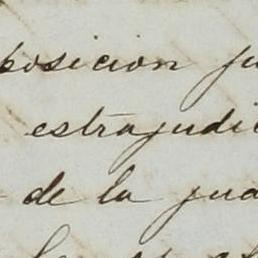 posicion ju
estrajudic
de la jua